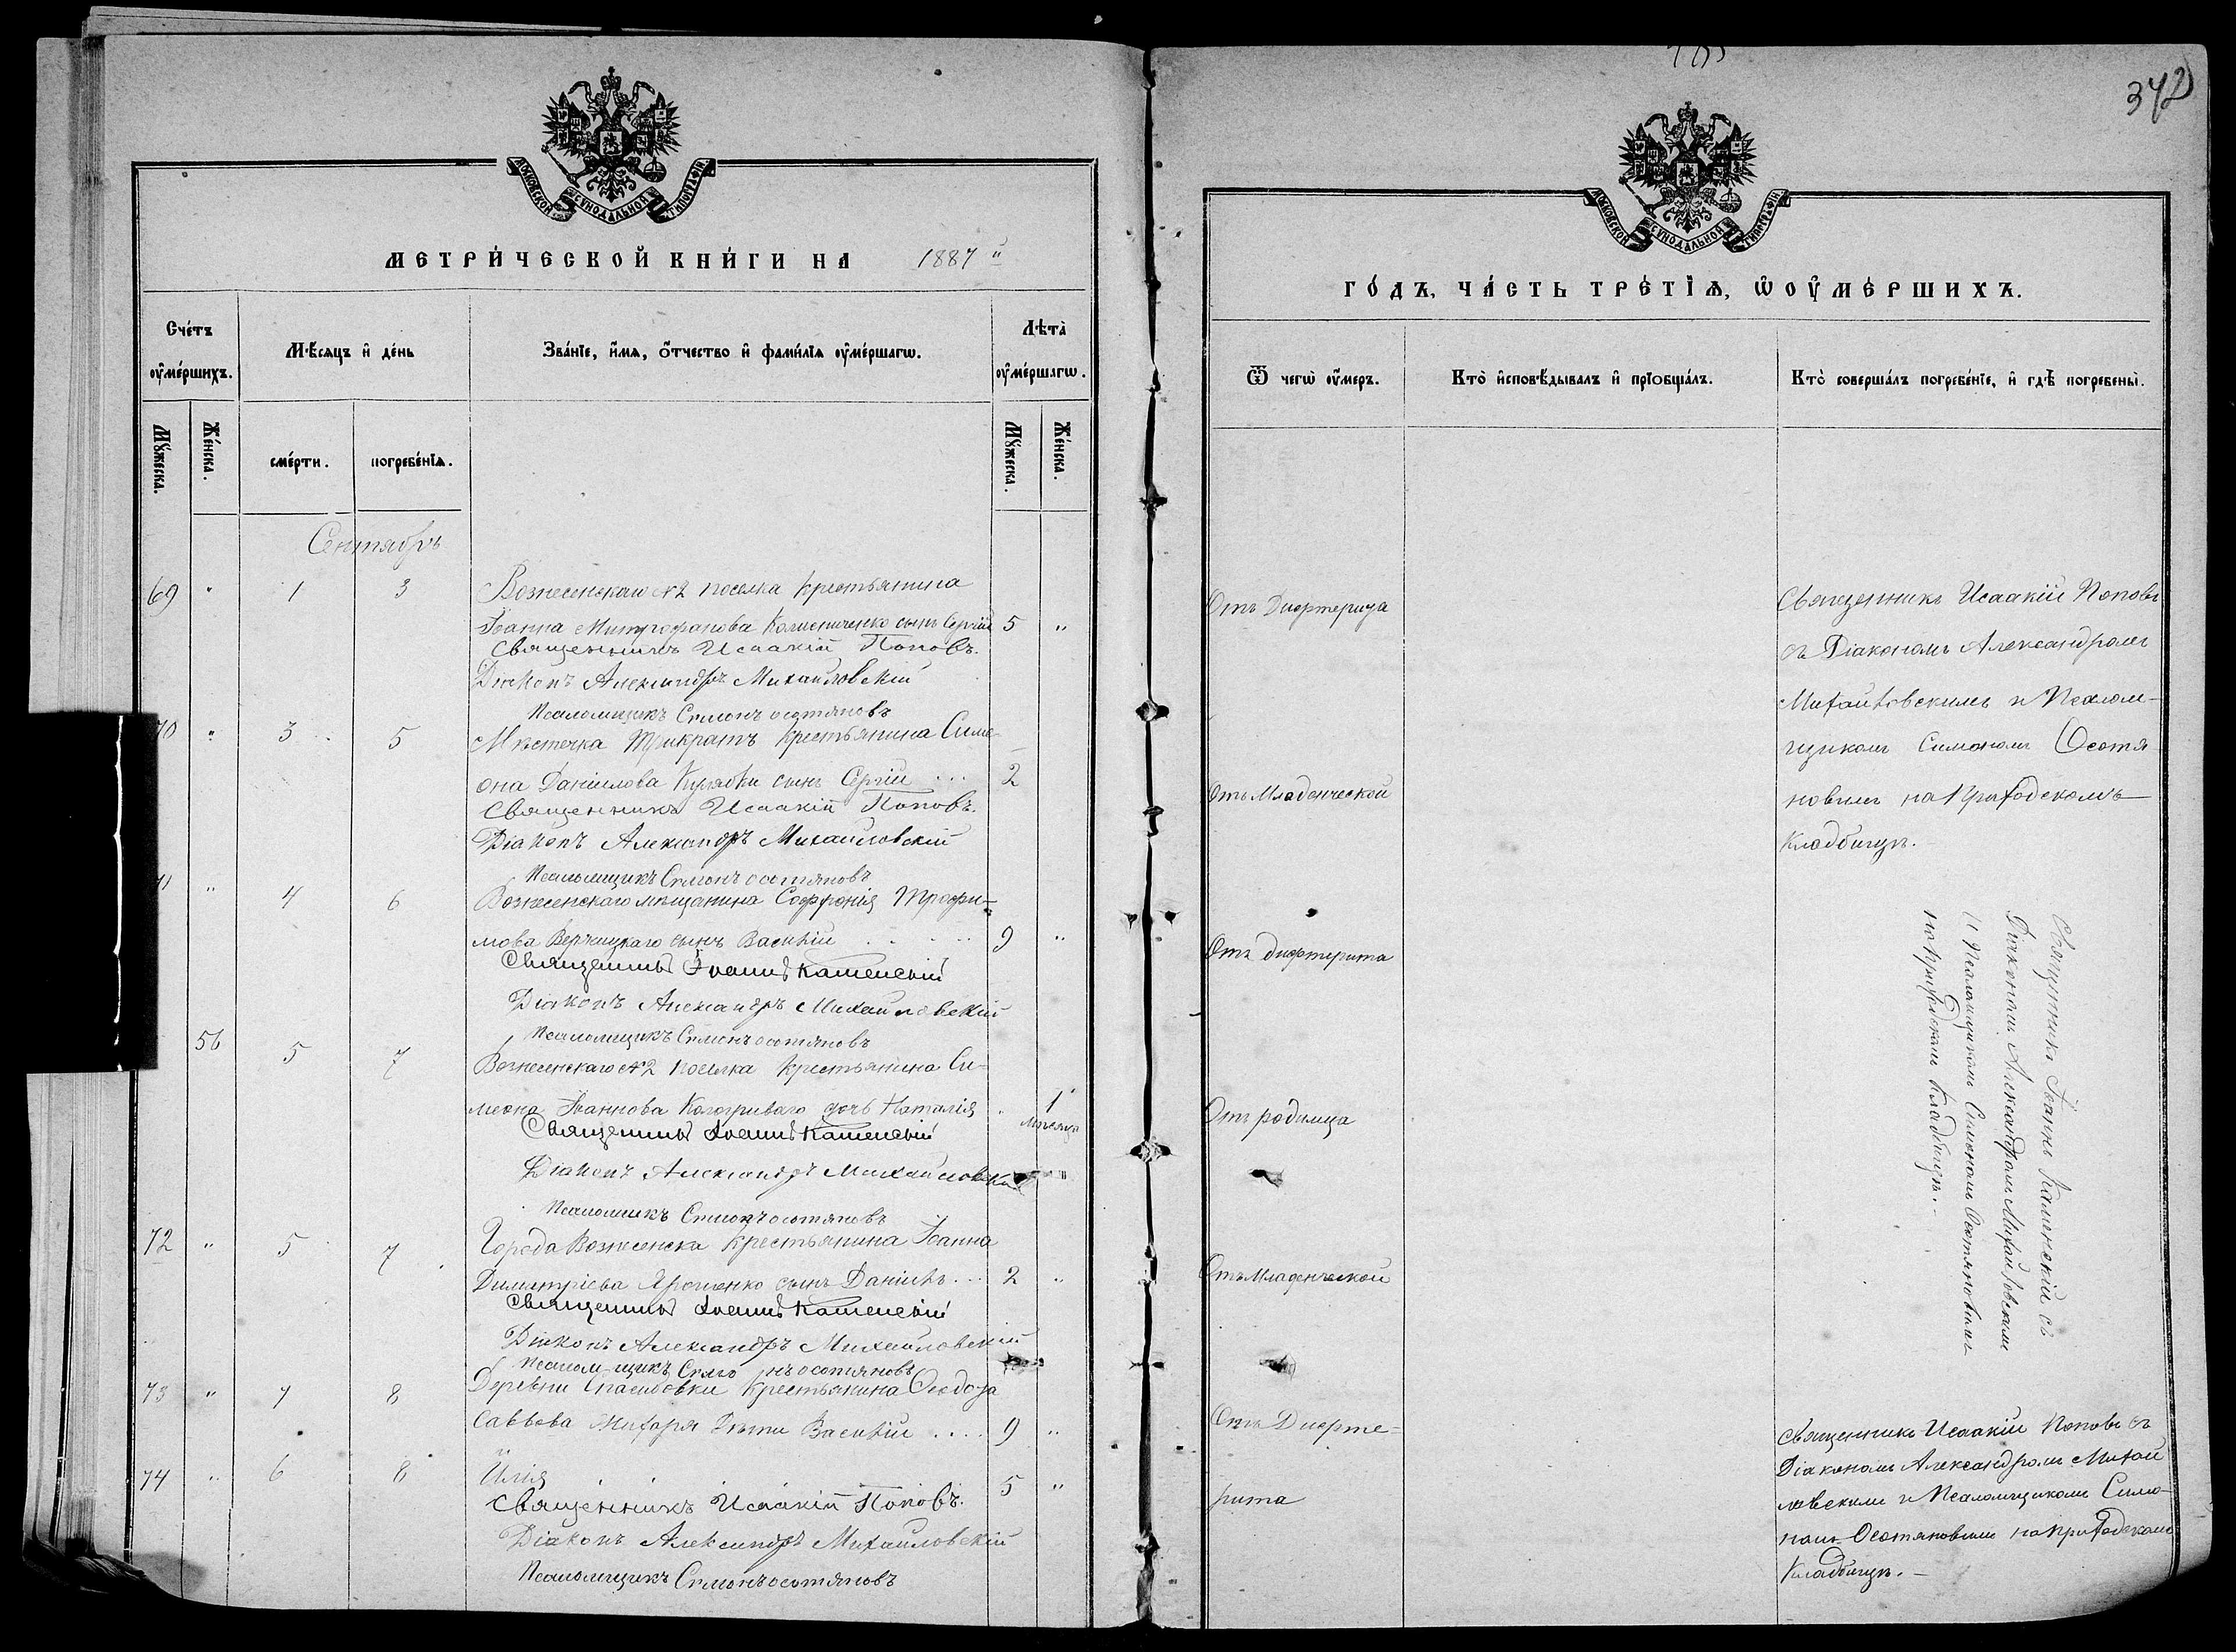 342
МОСКОВСКОЙ СѴНОДАЛЬНОЙ ТИПОГРАФІИ
МЕТРИ́ЧЕСКОЙ КНИ́ГИ НА 1887 й
Сче́тъ оу҆ме́ршихъ.
Мѣ́сяцъ и҆ де́нь
Зва́нїе, и҆́мѧ, ѻ҆́тчество и҆ фами́лїѧ оу҆ме́ршагѡ.
Лѣта̀ оу҆ме́ршагѡ.
Мꙋ́жеска.
Же́нска.
сме́рти.
погребе́нїѧ.
Мꙋ́жеска.
Же́нска.
Сентябрь
69 " 1 3 Вознесенскаго №2 поселка крестьянина
Іоанна Митрофанова Колисниченко сынъ Сергій 5 "
Священникъ Исаакій Поповъ.
Діаконъ Александръ Михайловскій
Псаломщикъ Симонъ Осотяновъ
70 " 3 5 Мѣстечка Трикратъ крестьянина Симе-
она Даніилова сынъ Сергій ... 2
Священникъ Исаакій Поповъ.
Діаконъ Александръ Михайловскій
Псаломщикъ Симонъ Осотяновъ
71 " 4 6 Вознесенскаго мѣщанина Софронія Трофи-
мова Вержицкаго сынъ Василій . . . . . 9 "
Священникъ Іоаннъ Каменскій
Діаконъ Александръ Михайловскій
Псаломщикъ Симонъ Осотяновъ
56 5 7 Вознесенскаго №2 поселка крестьянина Си-
меона Іоаннова Когогриваго дочь Наталія " 1 мѣсяцъ
Священникъ Іоаннъ Каменскій
Діаконъ Александръ Михайловскій
Псаломщикъ Симонъ Осотяновъ
72 " 5 7 Города Вознесенска крестьянина Іоанна
Димитріева Ярошенко сынъ Даніилъ... 2 "
Священникъ Іоаннъ Каменскій
Діаконъ Александръ Михайловскій
Псаломщикъ Симонъ Осотяновъ
73 " 7 8 Деревни крестьянина
Саввова дѣти Василій .... 9 "
74 " 6 8 Илія 5 "
Священникъ Исаакій Поповъ.
Діаконъ Александръ Михайловскій
Псаломщикъ Симонъ Осотяновъ
МОСКОВСКОЙ СѴНОДАЛЬНОЙ ТИПОГРАФІИ
ГО́ДЪ, ЧА́СТЬ ТРЕ́ТЇѦ, Ѡ҆ ОУ҆МЕ́РШИХЪ.
Ѿ чегѡ̀ оу҆́меръ.
Кто̀ и҆сповѣ́дывалъ и҆ прїобща́лъ.
Кто̀ соверша́лъ погребе́нїе, и҆ гдѣ̀ погребены̀.
Отъ Дифтерита
Священникъ Исаакій Поповъ
съ Діакономъ Александромъ
Михайловскимъ и Псалом-
щикомъ Симономъ Осотя
новымъ на Приходскомъ
Кладбищѣ.
Отъ Младенческой
Отъ дифтерита
Священникъ Іоаннъ Каменскій съ
Діакономъ Александромъ Михайловскимъ
и Псаломщикомъ Симономъ Осотяновымъ
на Приходскомъ Кладбищѣ.-
Отъ родимца
Отъ Младенческой
Отъ Дифте-
рита
Священникъ Исаакій Поповъ съ
Діакономъ Александромъ Михай
ловскимъ и Псаломщикомъ Симо-
номъ Осотяновымъ на приходскомъ
Кладбищѣ.-